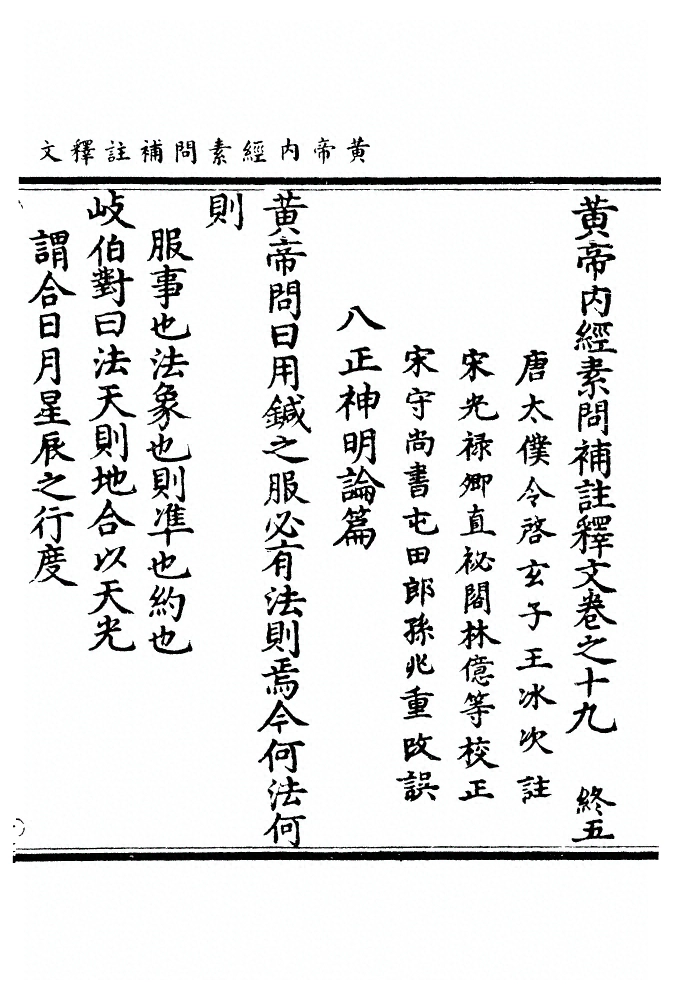 黃帝內經素問補註釋文
黃帝內經素問補註釋文卷之十九 終五
唐太僕令啓玄子王冰次註
宋光祿卿直祕閣林億等校正
宋守尚書屯田郎孫兆重改誤
八正神明論篇
黃帝問曰用鍼之服必有法則焉今何法何
則
服事也法象也則准也約也
岐伯對曰法天則地合以天光
謂合日月星辰之行度